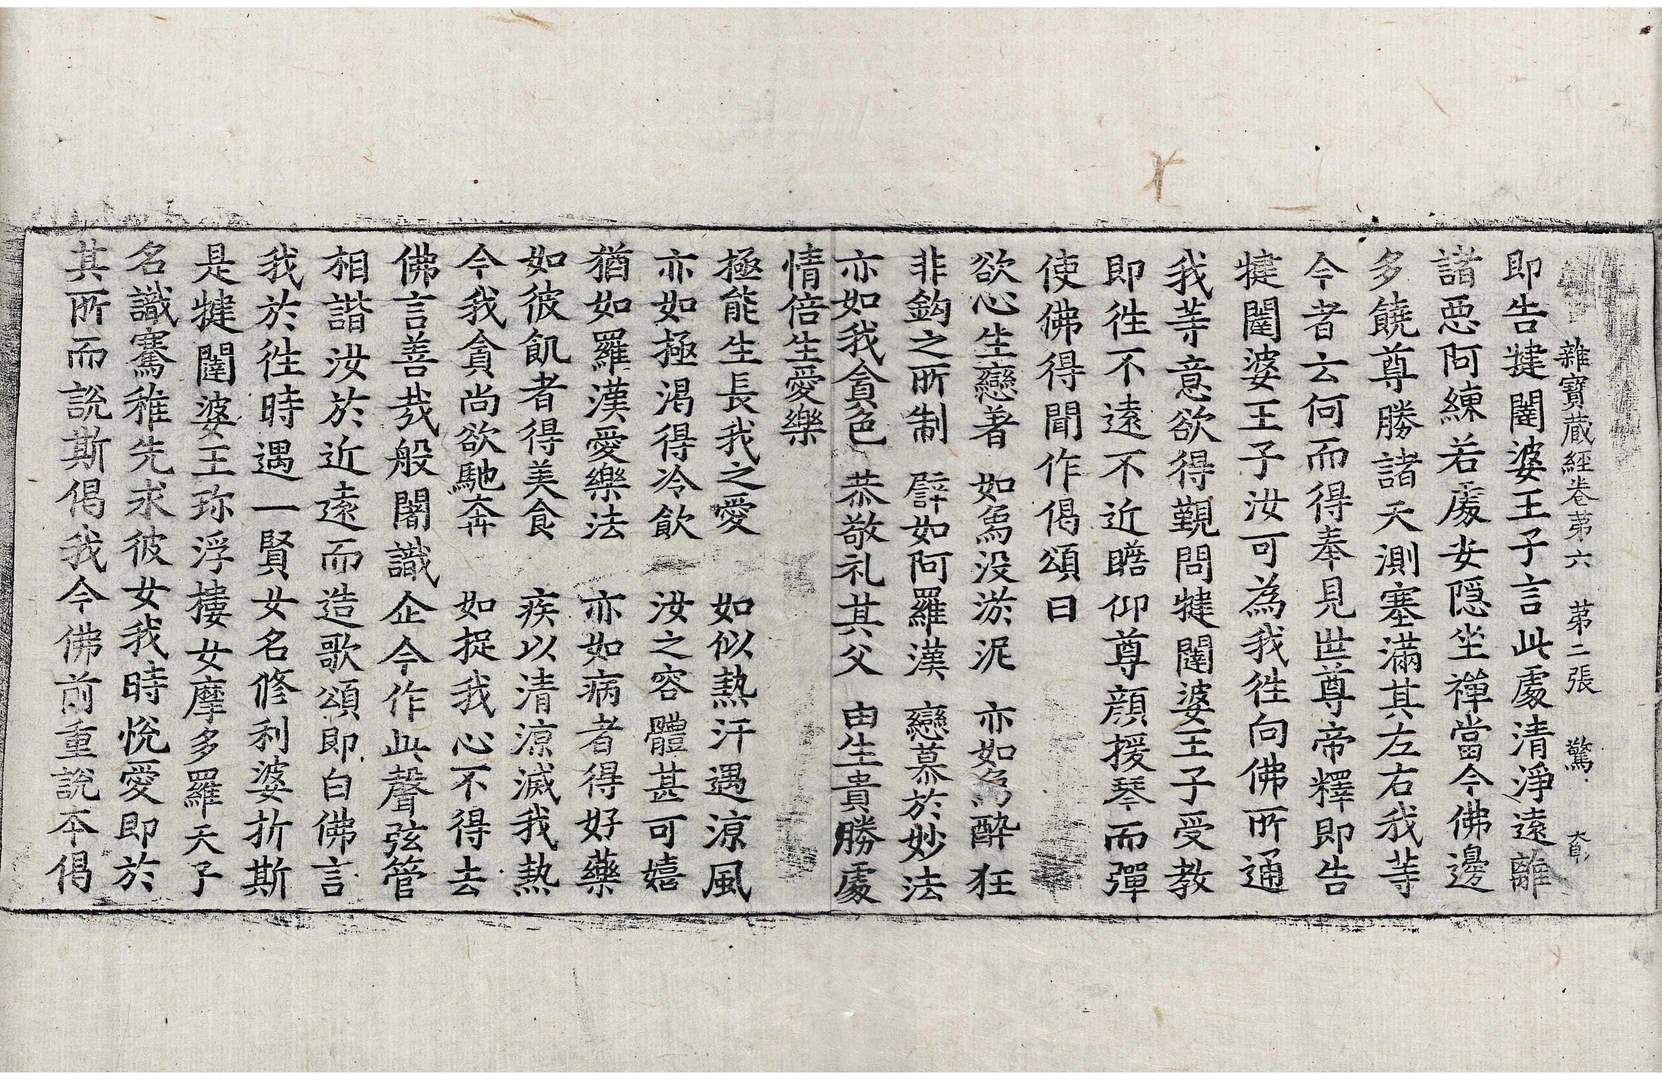 雜寶藏經卷第六 第二張 驚
即告揵闥婆王子言此處清淨遠離
諸惡阿練若處安隱坐禪當今佛邊
多饒尊勝諸天測塞滿其左右我等
今者云何而得奉見世尊帝釋即告
揵闥婆王子汝可為我徃向佛所通
我等意欲得覲問揵闥婆王子受教
即徃不遠不近瞻仰尊顔援琴而彈
使佛得聞作偈頌曰
欲心生戀著 如烏没淤泥 亦如烏醉狂
非鈎之所制 譬如阿羅漢 戀慕於妙法
亦如我貪色 恭敬礼其父 由生貴勝處
情倍生愛樂
極能生長我之愛 如似熱汗遇涼風
亦如極渴得冷飲 汝之容體甚可嬉
猶如羅漢愛樂法 亦如病者得好藥
如彼飢者得美食 疾以清涼滅我熱
今我貪尚欲馳奔 如捉我心不得去
佛言善哉般闍識企今作此聲弦管
相諧汝於近遠而造歌頌即白佛言
我於徃時遇一賢女名修利婆折斯
是揵闥婆王珎浮摟女摩多羅天子
名識騫稚先求彼女我時悅愛即於
其所而說斯偈我今佛前重說本偈